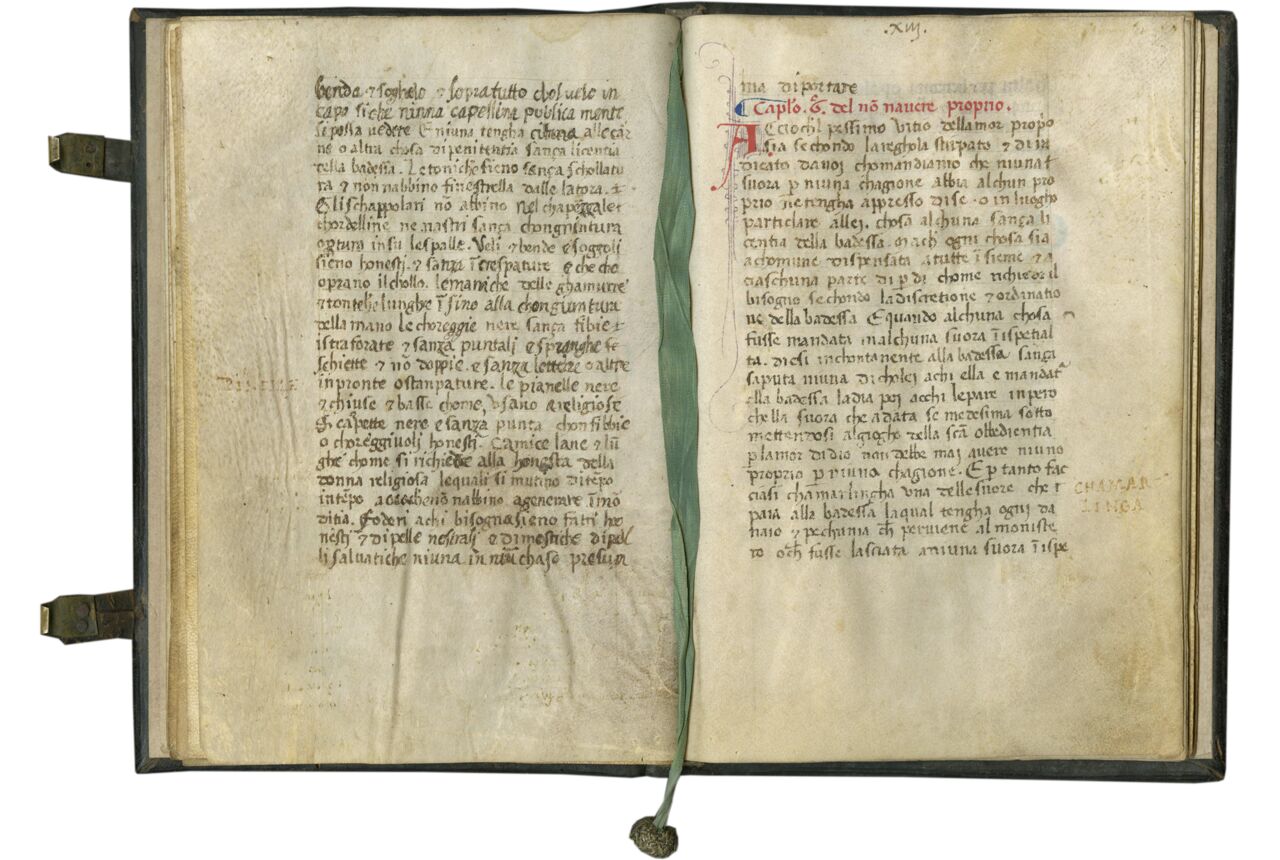 benda ⁊ sogholo ⁊ sopratutto chol velo in
capo si che ninna capellina publica mente
si possa vedere E niuna tengha alle car
ne o altra chosa di penitentia sança licentia
della badessa. Le toniche sieno sança schollatu
ra ⁊ non nabbino finestrella dalle latora.
Gli schappolari nō abbino nel
chordelline ne nastri sança chongiuntura
optura in su le spalle. Veli ⁊ bende ⁊ soggoli
sieno honesti. ⁊ sanza īcrespature e che cho
oprano il chollo. le maniche delle ghamurre
⁊ toniche lunghe īsino alla chongiuntura
della mano le choreggie nere sança fibie
istraforate ⁊ sanza puntali e spranghe
schiette ⁊ nō doppie. e sanza lettere o altre
inpronte o stanpature. le pianelle nere
⁊ chiuse ⁊ basse chome usano religiose
E carpette nere e sanza punta chon fibbie
o choreggiuoli honesti. Camice lane ⁊ lū
ghe chome si richiede alla honesta della
donna religiosa le quali si mutino di tēpo
intēpo acioche nō nabbino agenerare īmō
ditia. Foderi a chi bisogna sieno fatti ho
nesti ⁊ di pelle nostrali e dimestiche di pel
li salvatiche niuna in niū chaso presum
PINELLE
.xiij.
ma di portare
Caplo. 6. del nō navere proprio.
Acciochl pessimo vitio dellamor propo
sia secondo la reghola stirpato ⁊ di ra
dicato da noi chomandiamo che niuna
suora p niuna chagione abbia alchun pro
prio ne tengha appresso di se. o in luogho
particlare allei. chosa alchuna sança li
centia della badessa. mach ogni chosa sia
achomune dispensata a tutte īsieme ⁊ a
ciaschuna parte di p di chome richiede il
bisogno secondo la discretione ⁊ ordinatio
ne della badessa E quando alchuna chosa
fusse mandata inalchuna suora īispetial
ta. diesi inchontanente alla badessa sança
saputa niuna di cholei a chi ella e mandat
ella badessa la dia poi acchi le pare inpero
che lla suora che a data se medesima sotto
mettendosi al giogho della scā obbedientia
p lamor di dio non debbe mai avere niuno
proprio p niuna chagione. E p tanto fac
ciasi chamarlingha una delle suore che
paia alla badessa la qual tengha ogni da
naio ⁊ pechunia ch perviene al moniste
ro och fusse lasciata a niuna suora īispe
CHAMAR
LINGA